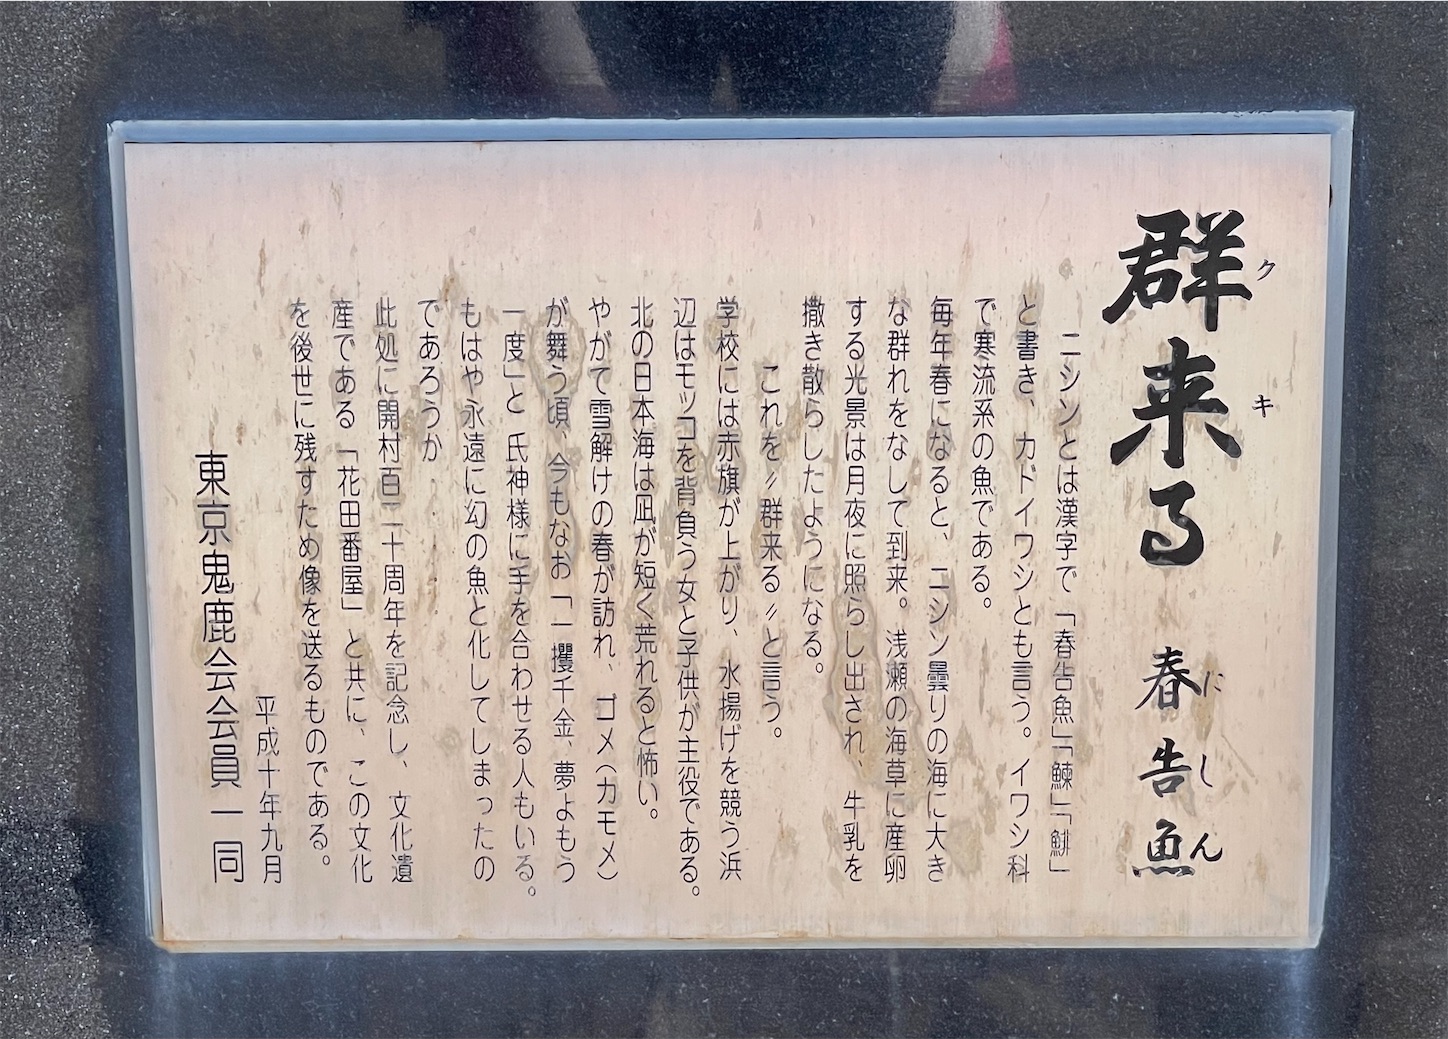 群来る 春告魚
クキ にしん
ニシンとは漢字で「春告魚」「鰊」「鯡」
と書き、カドイワシとも言う。イワシ科
で寒流系の魚である。
毎年春になると、ニシン曇りの海に大き
な群れをなして到来。浅瀬の海草に産卵
する光景は月夜に照らし出され、牛乳を
撒き散らしたようになる。
これを〃群来る〃と言う。
学校には赤旗が上がり、水揚げを競う浜
辺はモッコを背負う女と子供が主役である。
北の日本海は凪が短く荒れると怖い。
やがて雪解けの春が訪れ、ゴメ(カモメ)
が舞う頃、今もなお「一攫千金、夢よもう
一度」と氏神様に手を合わせる人もいる。
もはや永遠に幻の魚と化してしまったの
であろうか
此処に開村百二十周年を記念し、文化遺
産である「花田番屋」と共に、この文化
を後世に残すため像を送るものである。
平成十年九月
東京鬼鹿会会員一同